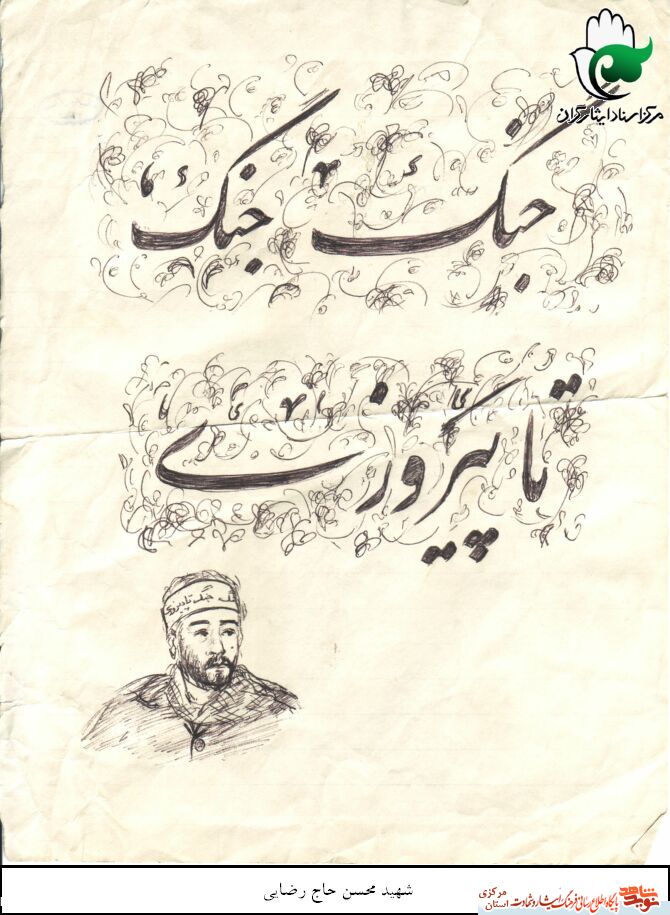 مرکز اسناد ایثارگران
جنگ جنگ
تا پیروزی
جنگ جنگ تا پیروزی
شهید محسن حاج رضایی
نوید شاهد
پایگاه اطلاع رسانی فرهنگ ایثار و شهادت استان مرکزی